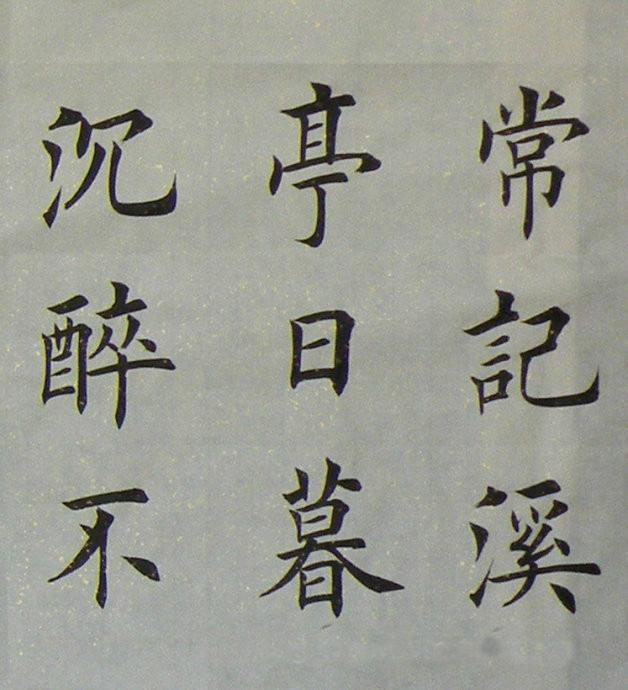 常記溪
亭日暮
沉醉不